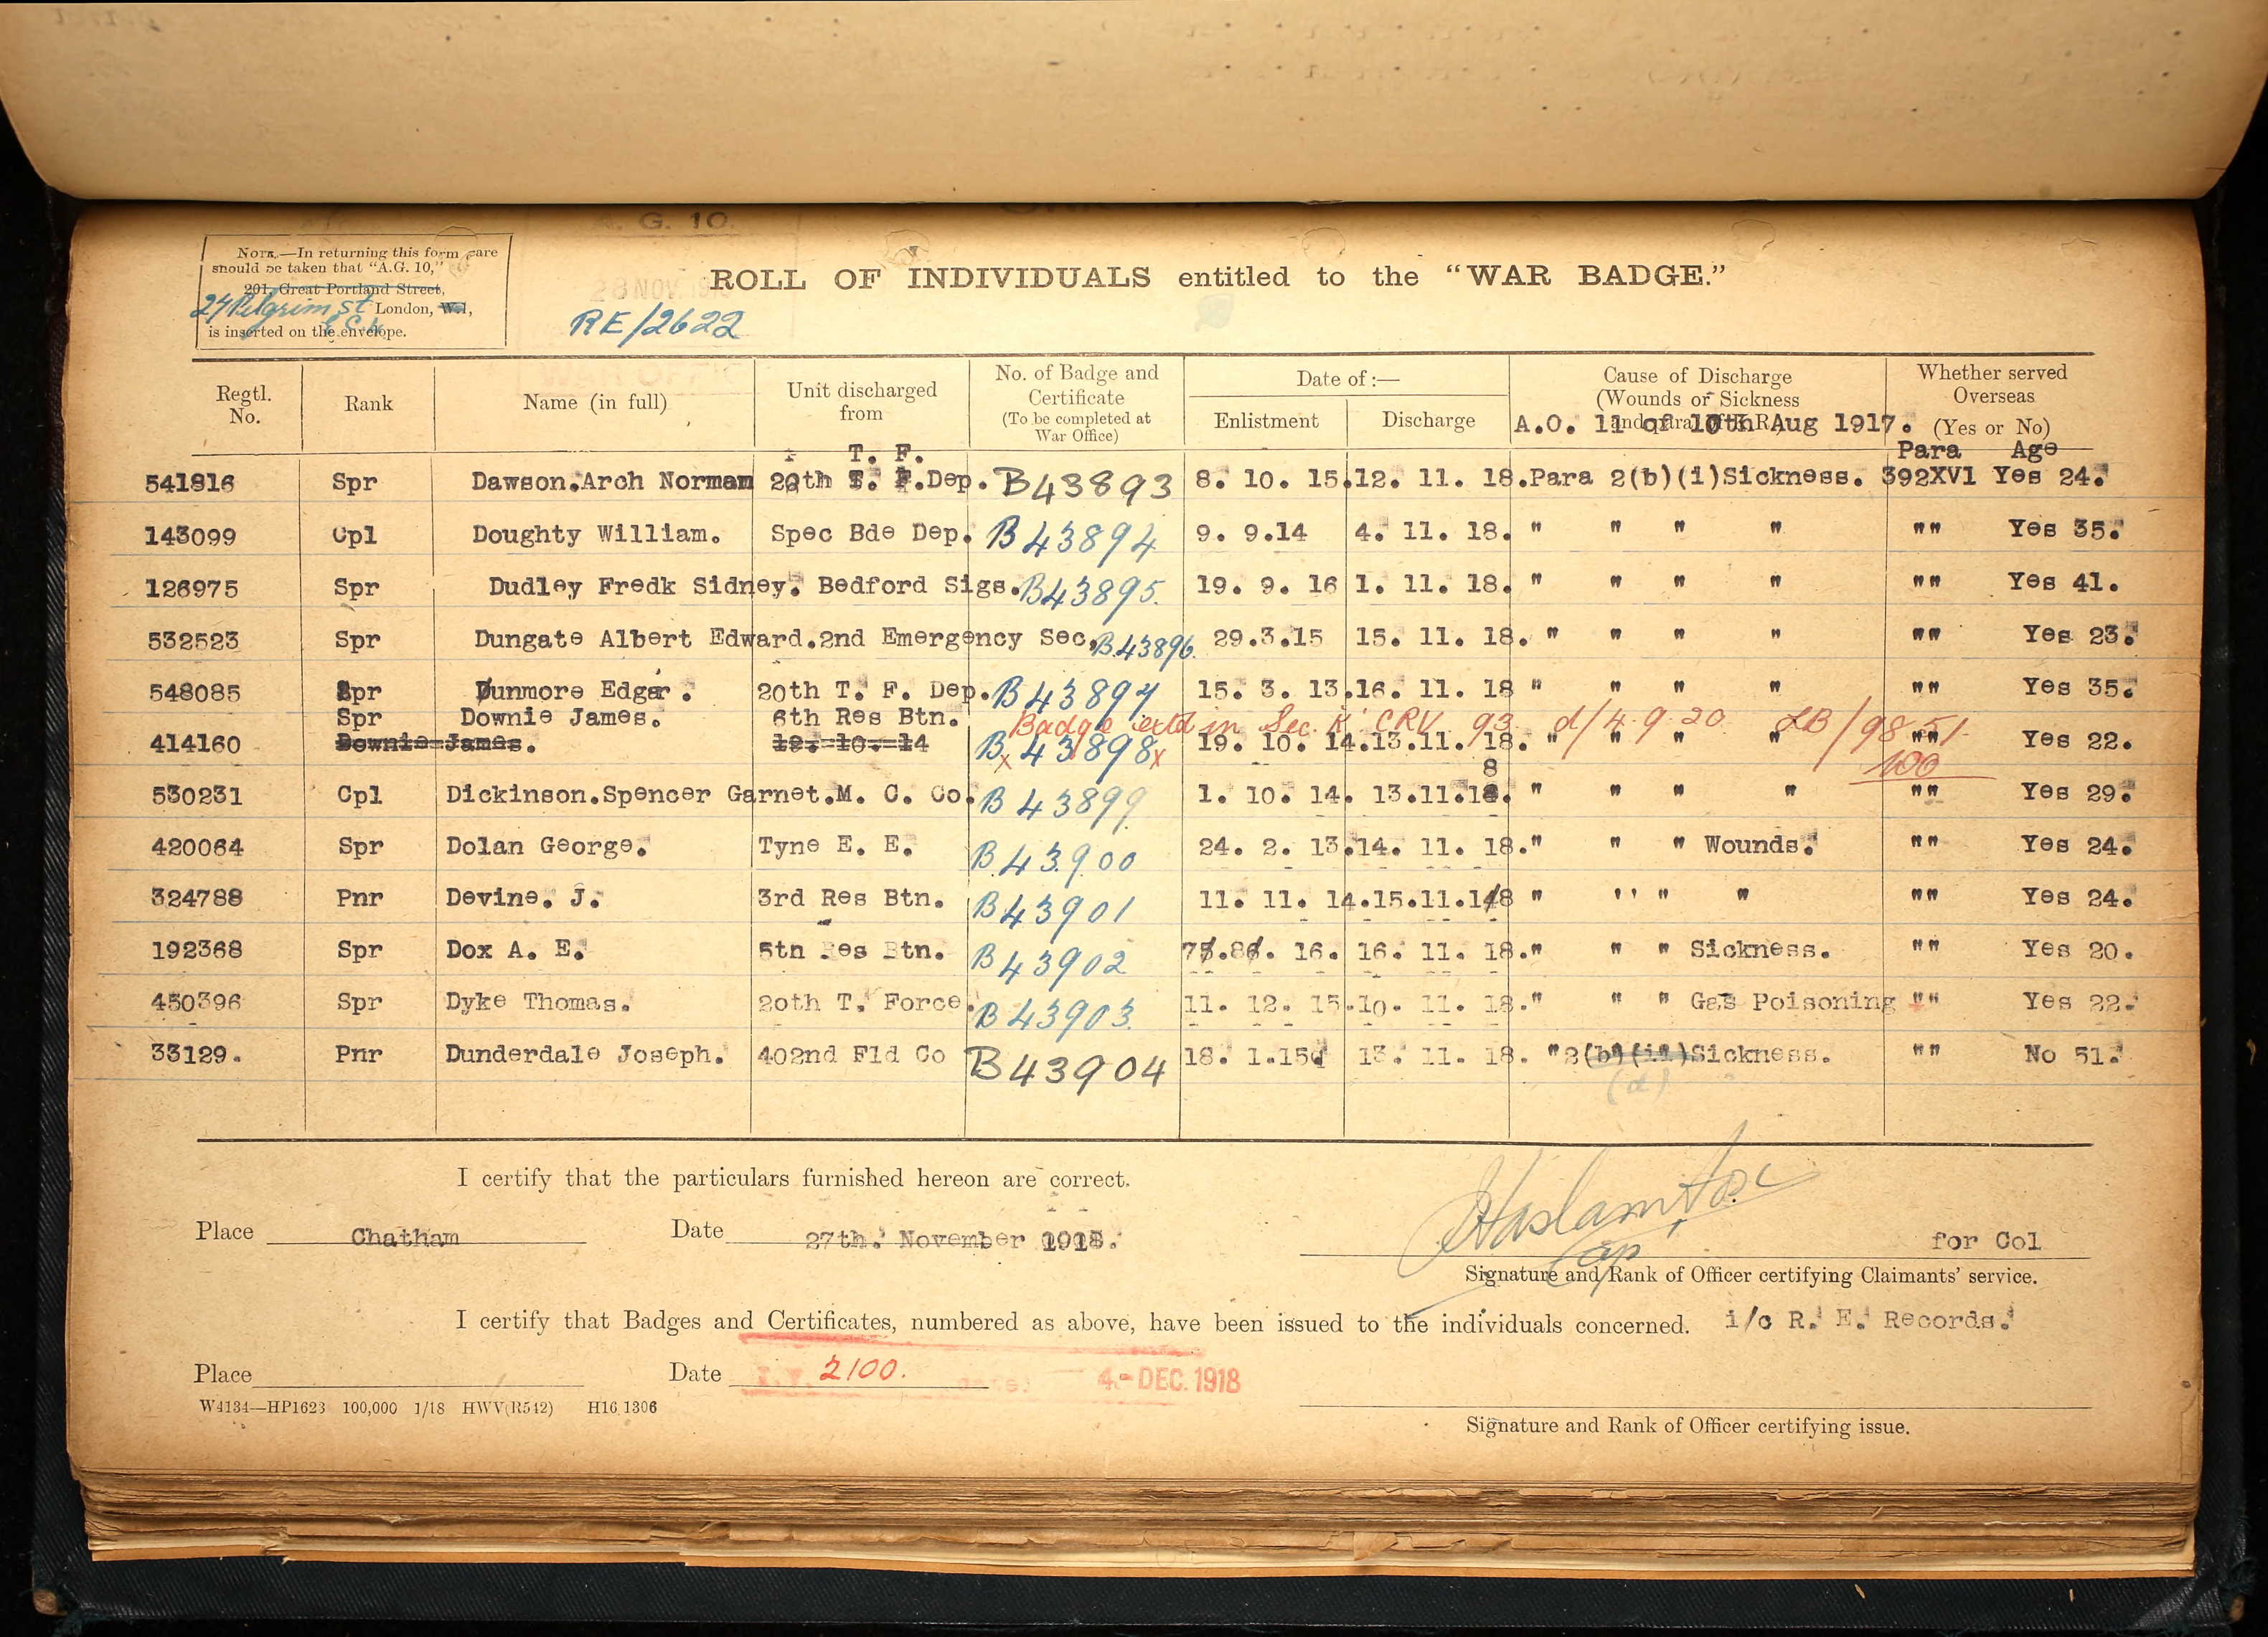 A. G. 10.
NOTE.—In returning this form care
should be taken that “A.G. 10,”
201, Great Portland Street,
27 Pilgrim St London, W.1,
E.C.4
is inserted on the envelope.
28 NOV
ROLL OF INDIVIDUALS entitled to the “WAR BADGE.”
RE/2622
WAR OFFIC
Regtl. No. Rank Name (in full) Unit discharged from No. of Badge and Certificate (To be completed at War Office) Date of :— Enlistment Discharge Cause of Discharge (Wounds or Sickness and para. K.R.) Whether served Overseas (Yes or No)
A.O. 11 of 10th Aug 1917.
T. F. Para Age
541816 Spr Dawson.Arch Norman 20th T. F.Dep. B43893 8. 10. 15.12. 11. 18.Para 2(b)(i)Sickness. 392XV1 Yes 24.
143099 Cpl Doughty William. Spec Bde Dep. B43894 9. 9.14 4. 11. 18. " " " " "" Yes 35.
126975 Spr Dudley Fredk Sidney. Bedford Sigs. B43895. 19. 9. 16 1. 11. 18. " " " " "" Yes 41.
532523 Spr Dungate Albert Edward.2nd Emergency Sec. B43896. 29.3.15 15. 11. 18. " " " " "" Yes 23.
548085 Spr Dunmore Edgar. 20th T. F. Dep. B43897 15. 3. 13.16. 11. 18 " " " " "" Yes 35.
Spr Downie James. 6th Res Btn. Badge in Sec. K. CRV 93 d/4.9.20 LB/9851.
414160 Downie James. 12. 10. 14 B x 43898 x 19. 10. 14.13.11. 18. " " " " "" Yes 22.
8 100
530231 Cpl Dickinson.Spencer Garnet.M. C. Co. B43899 1. 10. 14. 13.11.18. " " " " "" Yes 29.
420064 Spr Dolan George. Tyne E. E. B.43900 24. 2. 13.14. 11. 18." " " Wounds. "" Yes 24.
324788 Pnr Devine. J. 3rd Res Btn. B43901 11. 11. 14.15.11.18 " " " " "" Yes 24.
192368 Spr Dox A. E. 5tn Res Btn. B43902 75.86. 16. 16. 11. 18." " " Sickness. "" Yes 20.
450396 Spr Dyke Thomas. 20th T. Force. B43903. 11. 12. 15.10. 11. 18." " " Gas Poisoning "" Yes 22.
33129. Pnr Dunderdale Joseph. 402nd Fld Co B43904 18. 1.15 13. 11. 18. "2(b)(ii)Sickness. "" No 51.
(d)
I certify that the particulars furnished hereon are correct.
Haslam
Place Chatham Date 27th. November 1918. Cap for Col
Signature and Rank of Officer certifying Claimants’ service.
I certify that Badges and Certificates, numbered as above, have been issued to the individuals concerned. i/c R. E. Records.
Place Date 2100. 4-DEC.1918
W4134—HP1623 100,000 1/18 HWV(R542) H16.1306
Signature and Rank of Officer certifying issue.